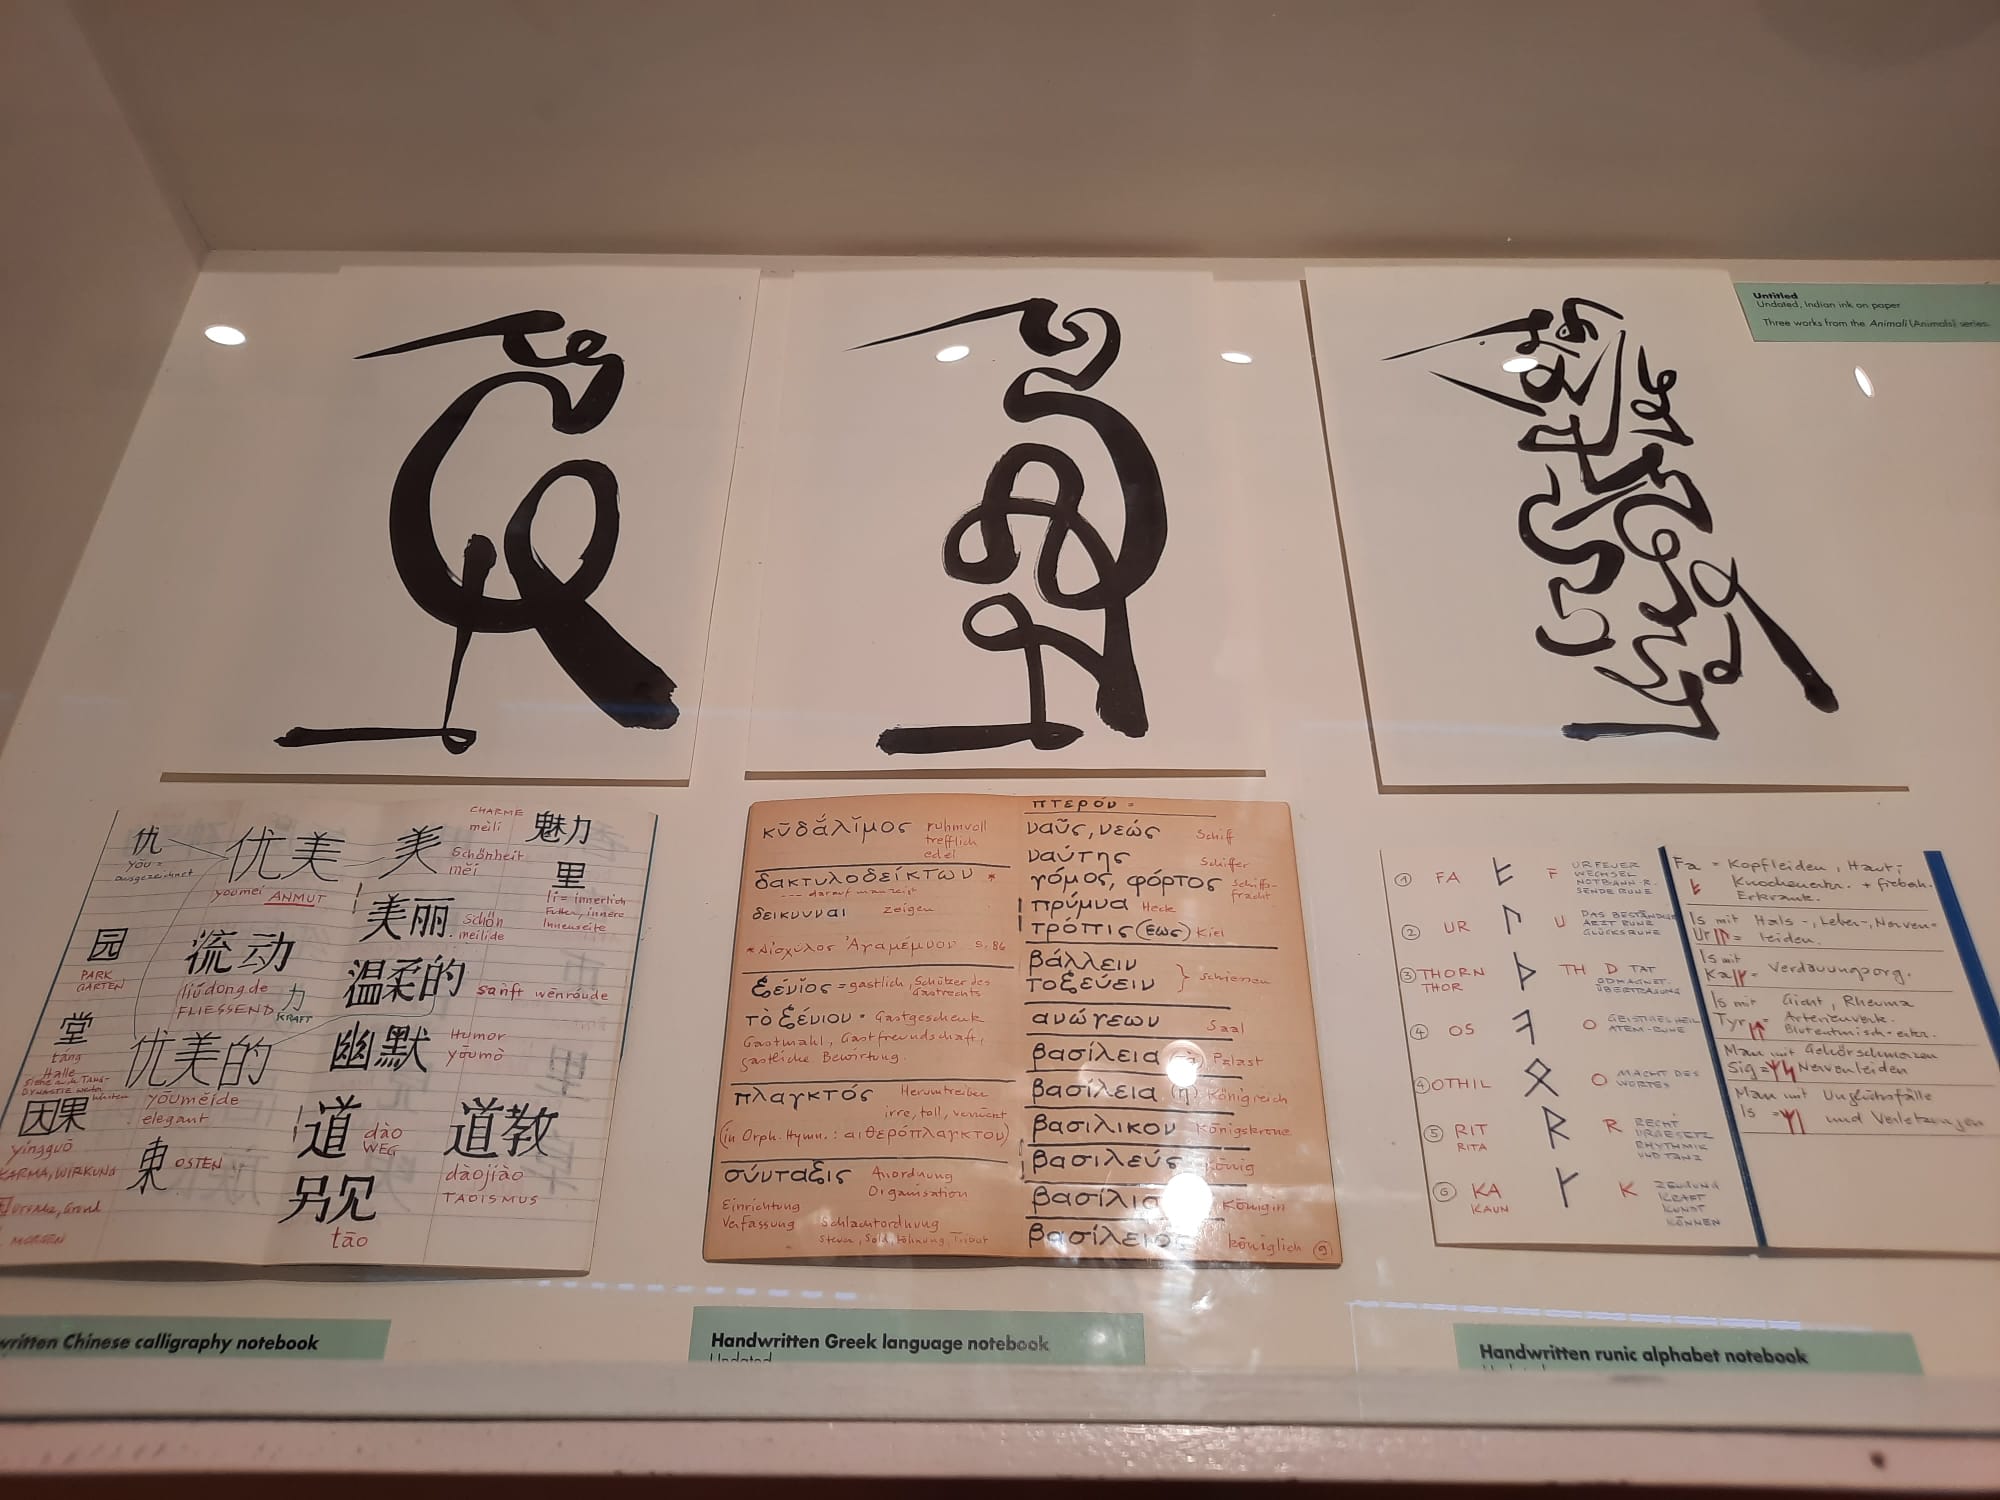 Untitled
Undated, Indian ink on paper
Three works from the Animali (Animals) series.
优
yōu =
ausgezeichnet
优美
youmei ANMUT
美
Schönheit
měi
CHARME
mèilì
魅力
里
li = innerlich
Futter, innere
Innenseite
美丽
schön
meilide
园
PARK
GARTEN
流动
liúdong.de
FLIESSEND
力
KRAFT
温柔的
sanft wēnróude
堂
táng
Halle
优美的
yōuměide
elegant
幽默
Humor
yōumò
因果
yīngguǒ
KARMA, WIRKUNG
東 OSTEN
道
dào
WEG
道教
dàojiào
TAOISMUS
另见
tāo
MORGEN
written Chinese calligraphy notebook
κῡδάλῐμος ruhmvoll
trefflich
edel
δακτυλοδείκτων *
darauf man zeigt
δεικνυναι zeigen
* Αἰσχύλος Ἀγαμέμνον S. 86
ξένῐος = gastlich, Schützer des
Gastrechts
τὸ ξένιον = Gastgeschenk
Gastmahl, Gastfreundschaft,
gastliche Bewirtung.
πλαγκτός Herumtreiber
irre, toll, verrückt
(in Orph. Hymn.: αιθερόπλαγκτον)
σύνταξις Anordnung
Organisation
Einrichtung
Verfassung Schlachtordnung
Steuer, Sold, Löhnung, Tribut
πτερόν =
ναῦς, νεώς Schiff
ναύτης Schiffer
γόμος, φόρτος Schiffs-
fracht
πρύμνα Heck
τρόπις (εως) Kiel
βάλλειν
τοξεύειν } schiessen
ανώγεων Saal
βασίλεια Palast
βασίλεια (η) Königreich
βασιλικον Königskrone
βασιλεύς König
βασίλια Königin
βασίλειος königlich
9
Handwritten Greek language notebook
Undated
1 FA F URFEUER
WECHSEL
NOTBANN-R.
SENDERUNE
2 UR U DAS BESTÄNDIGE
ARZT RUNE
GLÜCKSRUNE
3 THORN ᚦ TH D TAT
THOR ODMAGNET.
ÜBERTRAGUNG
4 OS O GEISTIGES HEIL
ATEM-RUNE
4 OTHIL ᛟ O MACHT DES
WORTES
5 RIT ᚱ R RECHT
RITA URGESETZ
RHYTHMIK
UND TANZ
6 KA K ZEUGUNG
KAUN KRAFT
KUNST
KÖNNEN
Fa = Kopfleiden, Haut;
Erkrank.
Is mit Hals-, Leber-, Nerven-
Ur = leiden.
Is mit
Ka = Verdauungsorg.
Is mit Gicht, Rheuma
Tyr = Arterienverk.
Man mit Gehörschmerzen
Sig = Nervenleiden
Man mit Unglücksfälle
Is = und Verletzungen
Handwritten runic alphabet notebook